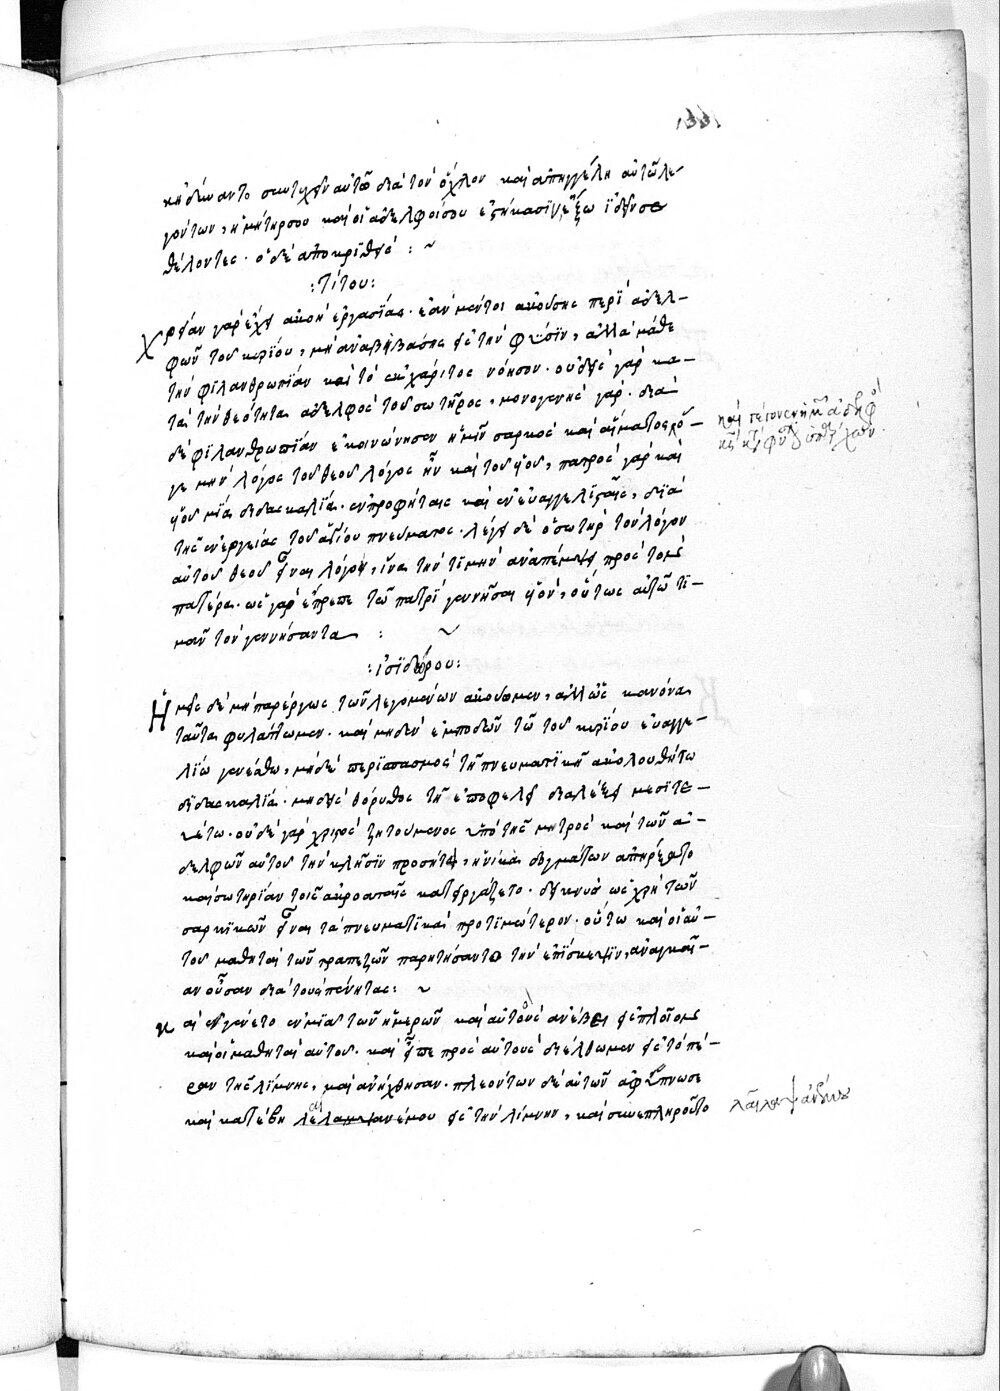 κηδύναντο συντυχεῖν αὐτῶ διὰ τὸν ὄχλον καὶ ἀπηγγέλη αὐτῶ λε-
γόντων, ἡ μήτηρ σου καὶ οἱ ἀδελφοί σου ἑστήκασιν ἔξω ἰδεῖν σε
θέλοντες. ὁ δὲ ἀποκριθεὶς : ~
:Τίτου:
Χρείαν γὰρ ἔχει ἀκοὴ ἐργασίας. ἐὰν μέντοι ἀκούσης περὶ ἀδελ-
φῶν τοῦ κυρίου, μὴ ἀναβιβάσης εἰς τὴν φύσϊν, ἀλλὰ μάθε
τὴν φιλανθρωπίαν καὶ τὸ ἐκ χάριτος νόησον. οὐδεὶς γὰρ κα-
τὰ τὴν θεότητα ἀδελφὸς τοῦ σωτῆρος, μονογενὴς γάρ. διὰ
δὲ φιλανθρωπίαν ἐκοινώνησεν ἡμῖν σαρκὸς καὶ αἵματος ὁ
γε μὴν λόγος τοῦ θεοῦ λόγος ἦν καὶ τοῦ υἱοῦ, πατρὸς γὰρ καὶ
υἱοῦ μία διδασκαλία. ἐν προφήταις καὶ ἐν εὐαγγελισταῖς, διὰ
τῆς ἐνεργείας τοῦ ἁγίου πνεύματος. λέγει δὲ ὁ σωτὴρ τὸν λόγον
αὐτοῦ θεοῦ εἶναι λόγον, ἵνα τὴν τιμὴν ἀναπέμψη πρὸς τὸν
πατέρα. ὡς γὰρ ἔπρεπε τῶ πατρὶ γεννῆσαι υἱόν, οὕτως αὐτῶ τι-
μᾶν τὸν γεννήσαντα : ~
:ἰσϊδώρου:
Ἡμεῖς δὲ μὴ παρέργως τῶν λεγομένων ἀκούωμεν, ἀλλ' ὡς κανόνα
ταῦτα φυλάττωμεν. καὶ μηδὲν ἐμποδὼν τῶ τοῦ κυρίου εὐαγγε-
λίω γενέσθω, μηδὲ περισπασμὸς τῆ πνευματικῆ ἀκολουθήτω
διδασκαλία. μηδεὶς θόρυβος τῆ ἐπωφελεῖ διαλέξει μεσιτευ-
έτω. οὐδὲ γὰρ χριστὸς ζητούμενος ὑπὸ τῆς μητρὸς καὶ τῶν ἀ-
δελφῶν αὐτοῦ τὴν κλῆσϊν προσήκατο, ἡνίκα δογμάτων ἀπήρξατο
καὶ σωτηρίαν τοῖς ἀκροαταῖς κατειργάζετο. δεικνὺς ὡς χρὴ τῶν
σαρκικῶν εἶναι τὰ πνευματικὰ προτιμώτερον. οὕτω καὶ οἱ αὐ-
τοῦ μαθηταὶ τῶν τραπεζῶν παρητήσαντο τὴν ἐπίσκεψϊν, ἀναγκαῖ-
αν οὖσαν διὰ τοὺς πένητας : ~
καὶ ἐγένετο ἐν μιᾶ τῶν ἡμερῶν καὶ αὐτὸς ἀνέβη εἰς πλοῖον
καὶ οἱ μαθηταὶ αὐτοῦ. καὶ εἶπε πρὸς αὐτοὺς διέλθωμεν εἰς τὸ πέ-
ραν τῆς λίμνης, καὶ ἀνήχθησαν. πλεόντων δὲ αὐτῶν ἀφύπνωσε
καὶ κατέβη ἀνέμου εἰς τὴν λίμνην, καὶ συνεπληροῦντο
λαῖλαψ ἀνέμου